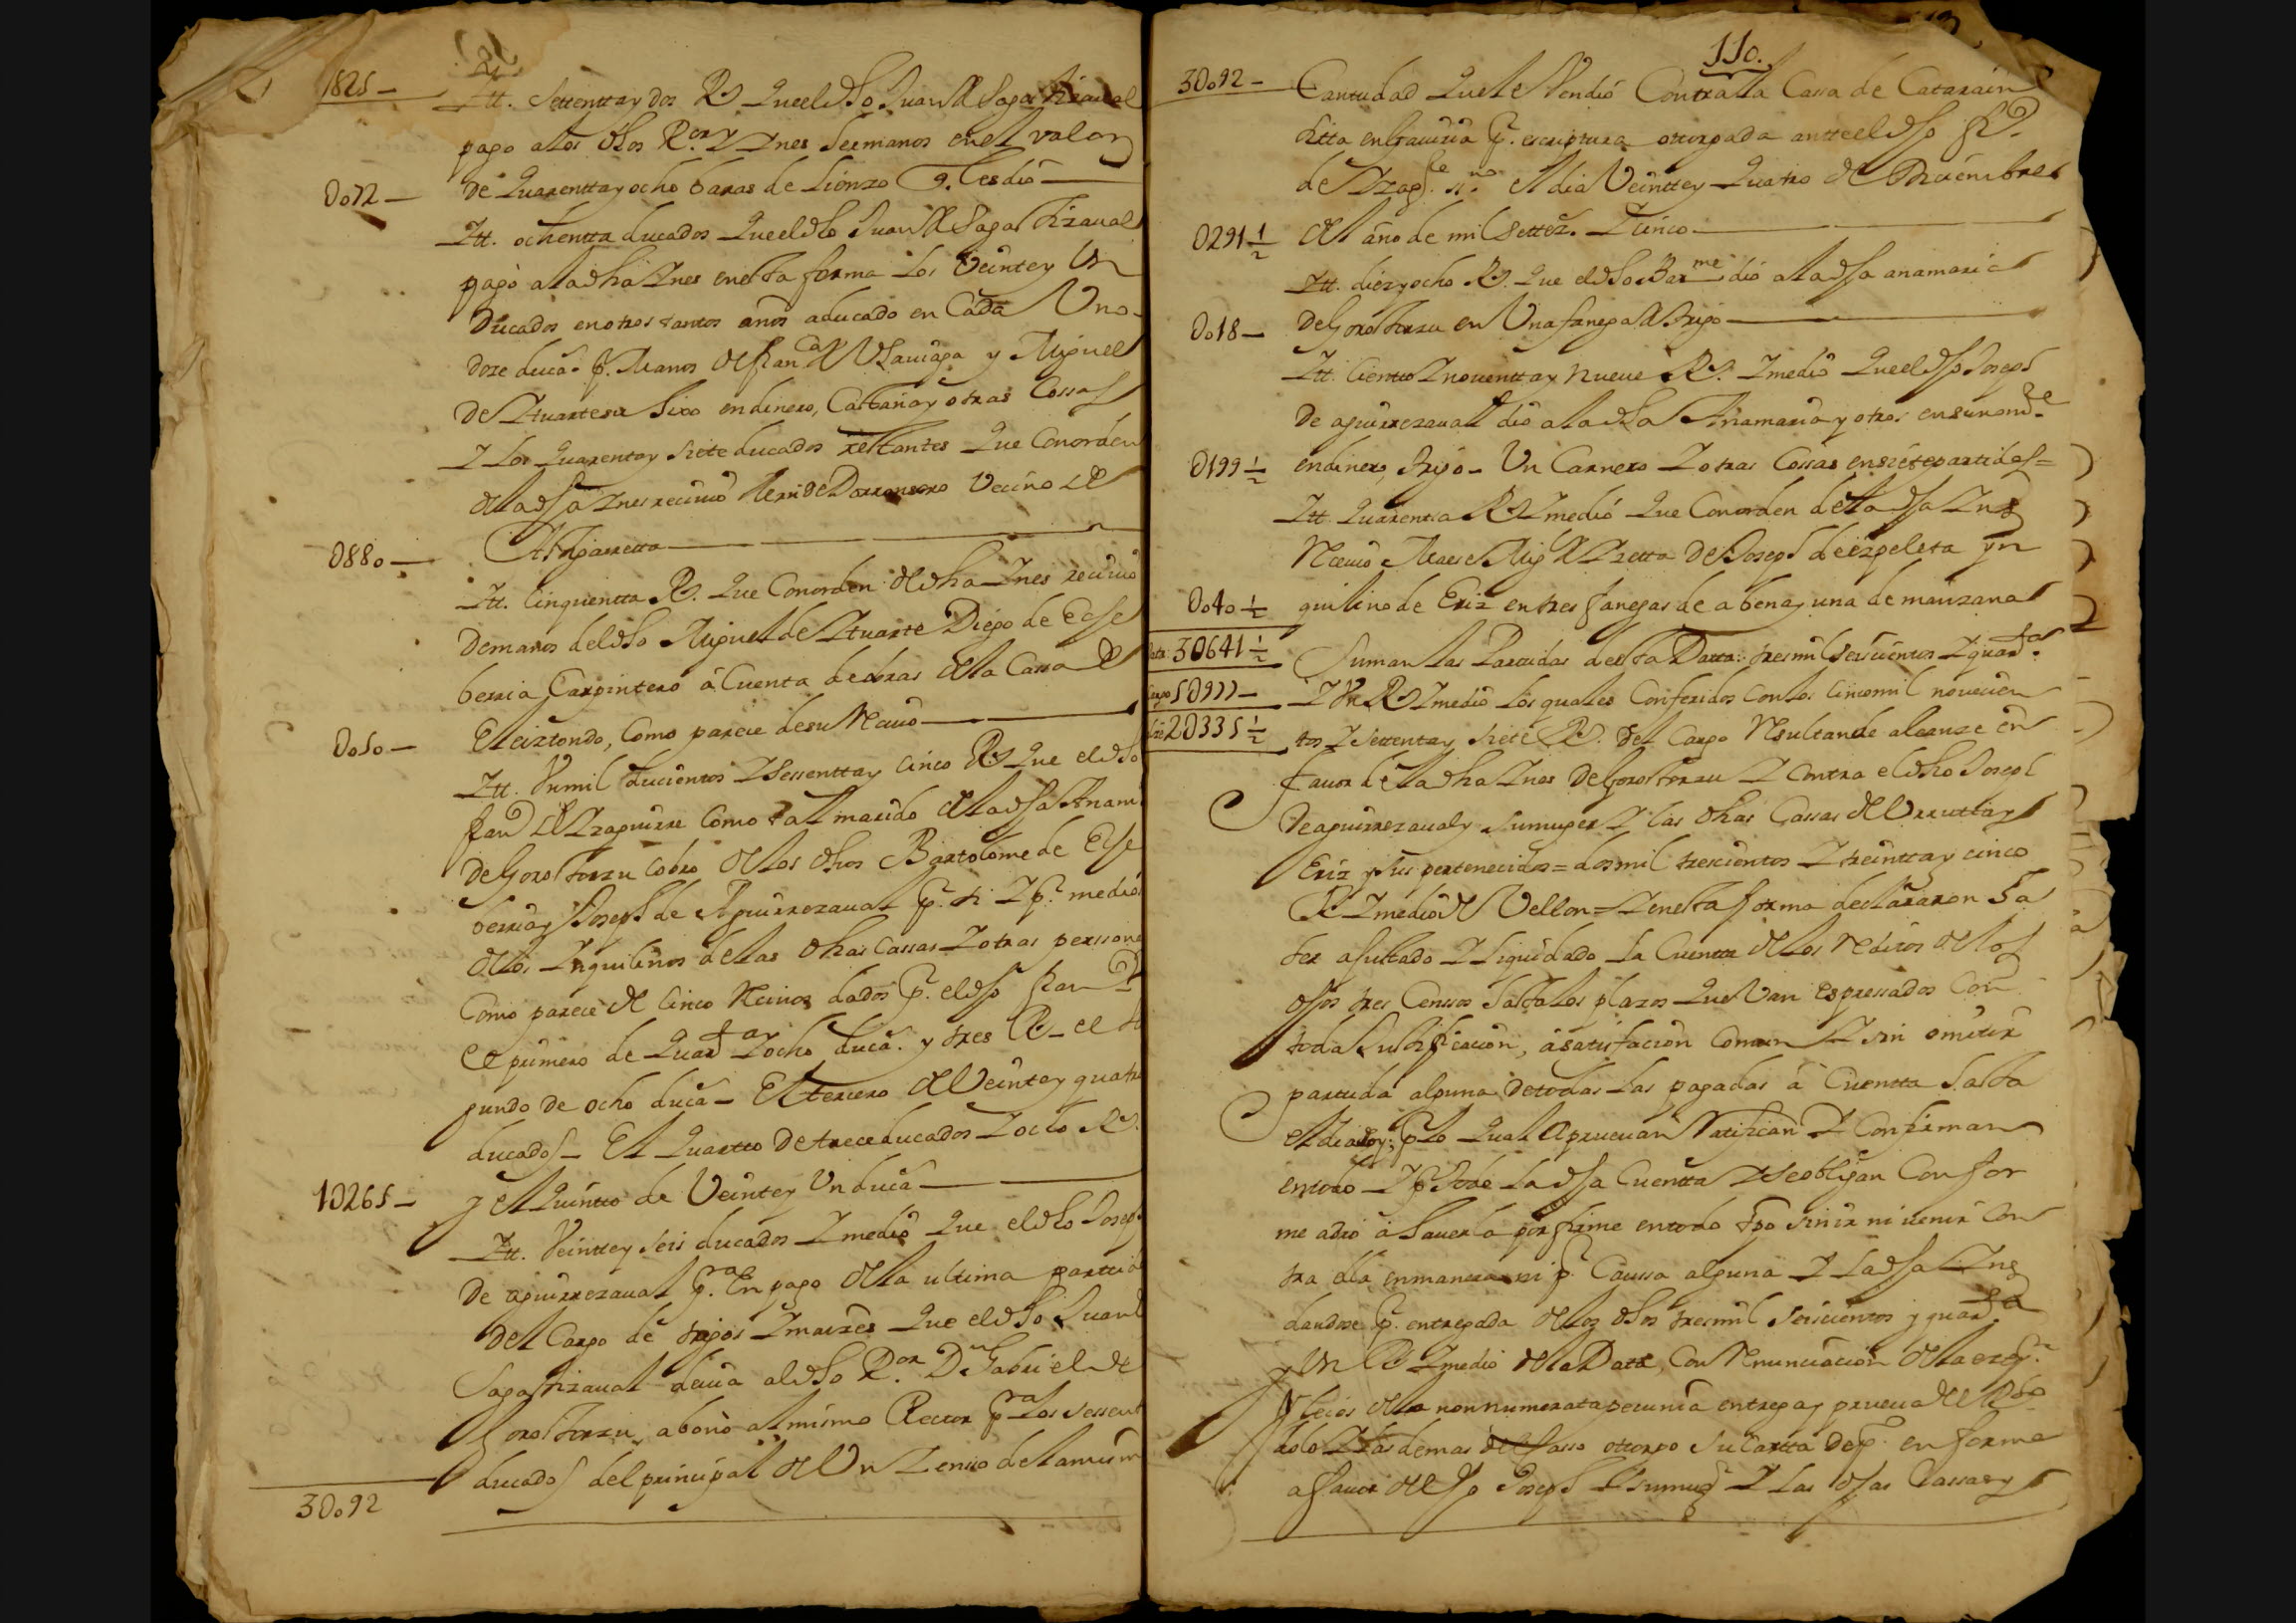 1825 —
Itt. settenttay dos Rs. Que el dho Juan de Sagastizaval
pago a los dhos Ror. Y Ynes hermanos en el valor
D072 — de Quarenttay ocho baras de Lienzo q. les dio —
Itt. ochentta ducados Que el dho Juan de Sagastizaval
pagò a la dha Ynes en esta forma los Veintey Un
Ducados en otros tantos años a ducado en Cada Uno -
doze duca.s p. Manos de Fran.ca de y Miguel
De Ytuarte su hixo en dinero, Castaña y otras Cossas
Y Los Quarentay siete ducados restantes Que Con orden
de la dha Ynes reciuio de Dorronsoro Vecino de
D880 — Astigarreta —
Itt. Cinquentta Rs. Que Con orden de dha Ynes reciuio
De manos del dho Miguel de Ytuarte Diego de Eche
berria Carpintero à Cuenta de obras de la Cassa de
D050 — Eleiztondo, Como parece de su Reciuo —
Itt. Un mil ducientos Y Sessenttay cinco Rs. Que el dho
Fran.co de Yzaguirre Como tal marido de la dha Anam.a
De Gorostorzu Cobro de los dhos Bartolome de Eche
berria y Joseph de Aguirrezaual p. si Y p. medio
de los Ynquilinos de las dhas Cassas Y otras persona
Como parece de Cinco Reciuos dados p. el dho Fran.co
el primero de Quar.ta Y ocho duca.s y tres Rs. — el se
gundo de ocho duca.s — El tercero de Veintey quatro
ducados — El Quartto De trece ducados Y ocho Rs.
1D265 — y el Quintto de Veintey Un duca.s —
Itt. Veinttey seis ducados Y medio Que el dho Joseph
De aguirrezaual p.ra En pago de la ultima partida
del Cargo de trigos Y maizes Que el dho Juan de
Sagastizaval deuia al dho Ror. Dn. Gabriel de
Gorostorzu, abonò al mismo Rector p.ra los sessent
3D092 ducados del principal de Un Zenso de la mism
110.
3D092 — Cantidad Que le Vendió Contra la Cassa de Catarain
ditta en p. escriptura otorgada antte el dho
de el dia Veinttey Quatro de Diciembre
D291 1/2 del año de mil settez.s Y Cinco —
Itt. diez y ocho Rs. Que el dho Bar.me diò a la dha ana maria
D018 — De Gorostorzu en Una fanega de trigo —
Itt. Cientto Y nouenttay nueue Rs. Y medio Que el dho Joseph
De aguirrezaual diò a la dha Anamaria y otros en su nom.e
D199 1/2 en dinero, trigo — Un Carnero Y otras Cossas en siete partidas =
Itt. Quarentta Rs. Y medio Que Con orden de la dha Ynes
Reciuio Maese Mig.l de Yzetta De Joseph de ezpeleta yn
D040 1/2 quilino de Eriz en tres fanegas de abena y una de manzana
Data 3D641 1/2 Suman las Partidas de esta Datta: tres mil seiscientos Y quar.ta
Cargo 5D977 — Y Un Rs. Y medio los quales Conferidos con los Cinco mil nouecien
Alce 2D335 1/2 tos Y settentay siete Rs. del Cargo Resultan de alcanze en
fauor de la dha Ynes De Gorostorzu Y Contra el dho Joseph
De aguirrezaual y su muger Y las dhas Cassas de Urruttia y
Eriz y sus pertenecidos = dos mil trescientos Y treinttay cinco
Rs. Y medio de Vellon = Y en esta forma declararon ha
ber ajustado Y liquidado la Cuentta de los Reditos de los
dhos tres Censsos hasta los plazos Que Van espressados Con
toda Justificacion, à satisfacion Comun Y sin omitir
partida alguna de todas las pagadas à Cuentta hasta
el dia de oy: p. lo Qual Aprueuan Ratifican Y Confirman
en todo Y p. todo la dha Cuentta Y se obligan Confor
me a dro à hauerla por firme en todo tpo sin ir ni venir Con
tra ella en manera ni p. Caussa alguna Y la dha Ynes
dandose p. entregada de los dhos tres mil seiscientos y quar.ta
y Un Rs. Y medio de la Data, Con Renunciacion de la
leies de la non numerata pecunia entrega y prueua del
Y las demas de el Casso otorgo su Cartta De p. en forma
a fauor del dho Joseph Y su mug.r Y las dhas Cassas y